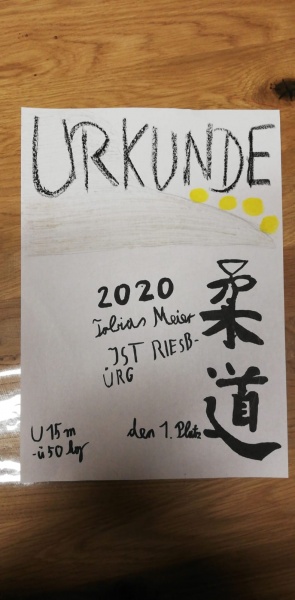 URKUNDE
2020
Tobias Meier
JST RIESB-
ÜRG
柔道
U 15 m
-ü50 kg
den 1. Platz